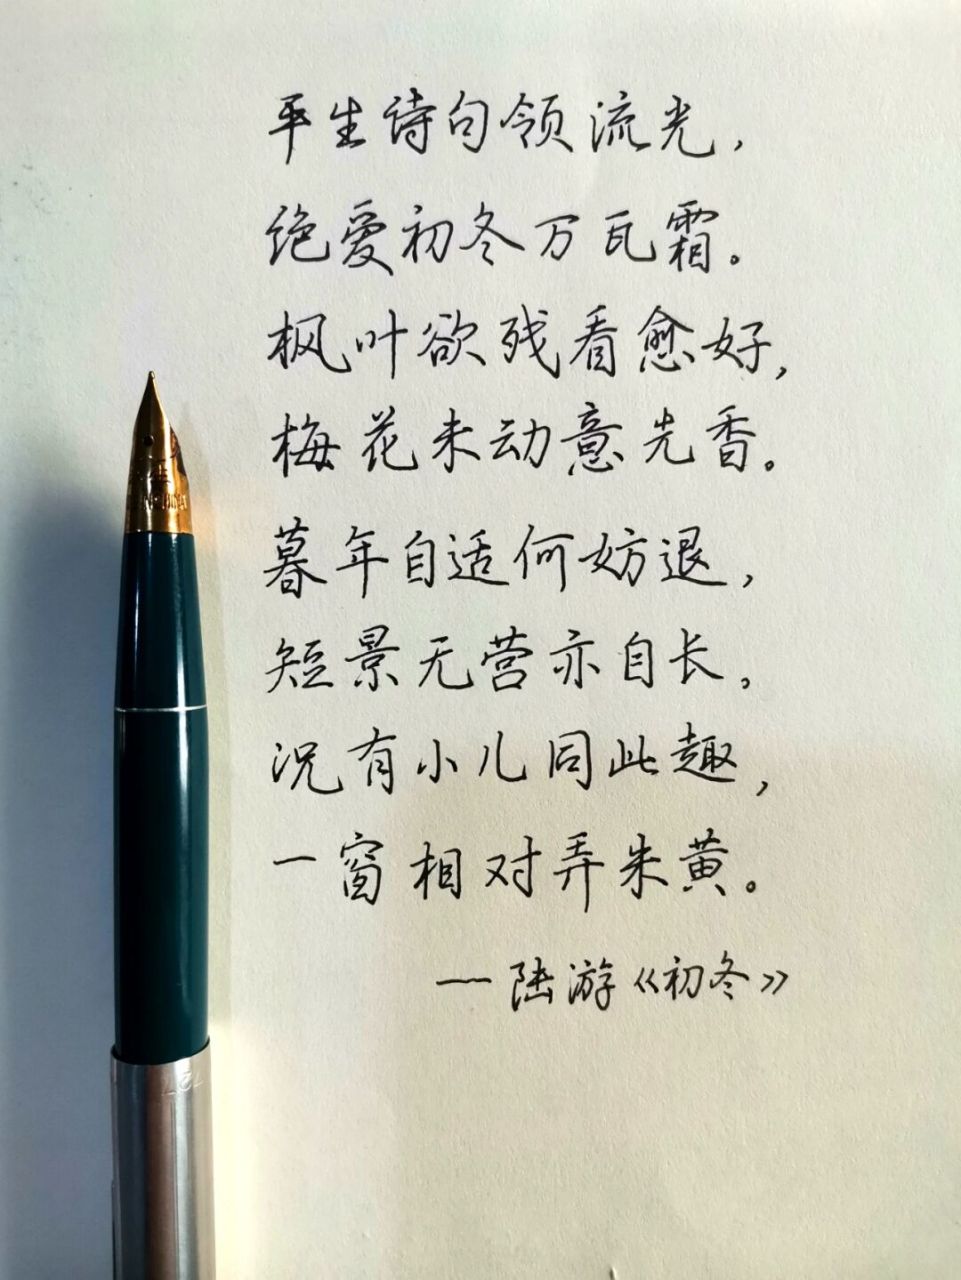 平生诗句领流光，
绝爱初冬万瓦霜。
枫叶欲残看愈好，
梅花未动意先香。
暮年自适何妨退，
短景无营亦自长。
况有小儿同此趣，
一窗相对弄朱黄。
——陆游《初冬》